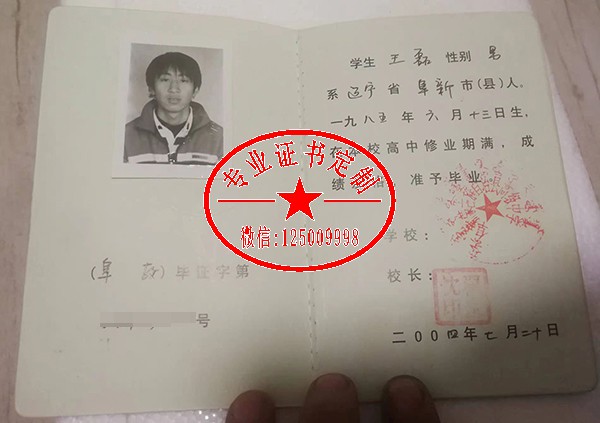 学生 王磊 性别 男
系 辽宁 省 阜新 市(县)人,
一九八五 年 六 月 十三 日生,
在本校高中修业期满,成
绩 准予毕业
专业证书定制
微信:125009998
学校:
校长:
(阜 ) 毕证字第
号
二00四年七月二十日